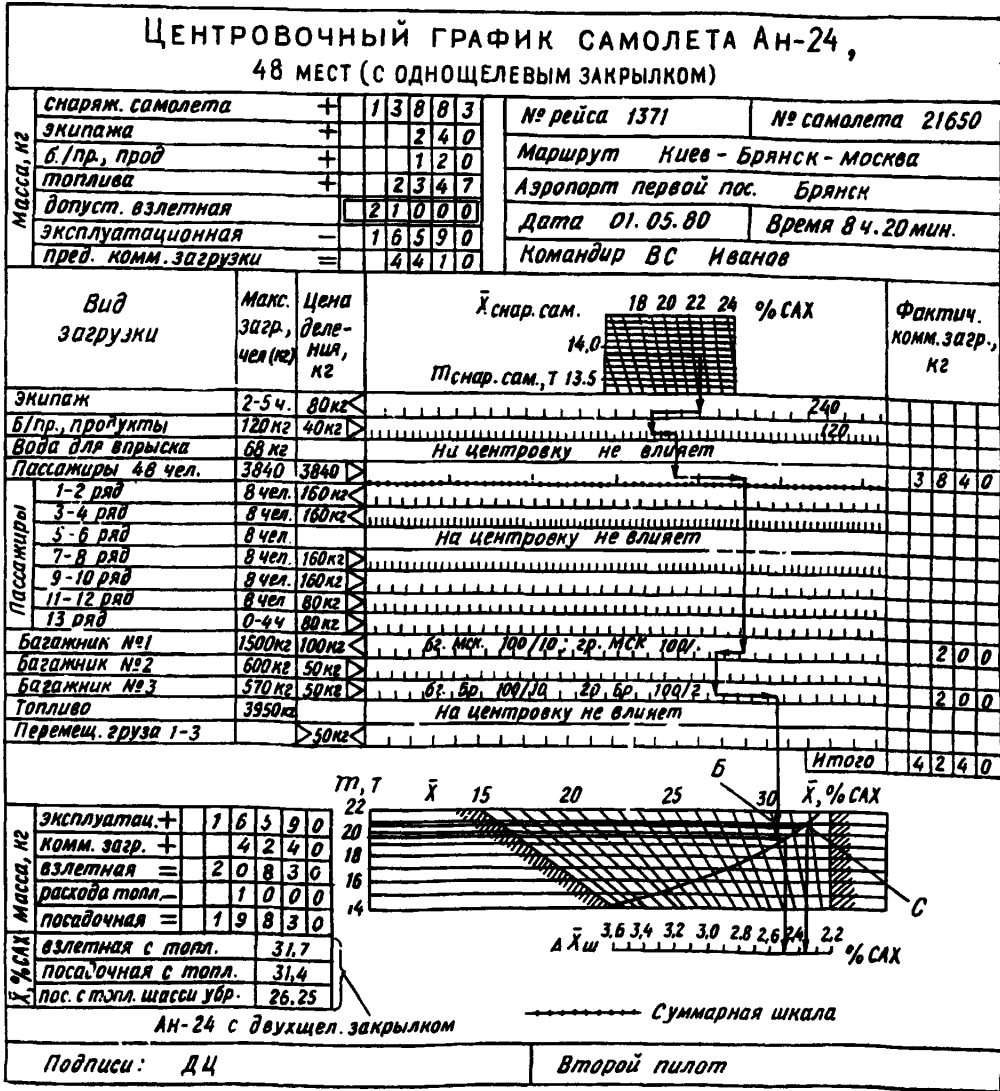 ЦЕНТРОВОЧНЫЙ ГРАФИК САМОЛЕТА АН-24,
48 МЕСТ (С ОДНОЩЕЛЕВЫМ ЗАКРЫЛКОМ)
Масса, кг
снаряж. самолета + 13883
экипажа + 240
б./пр., прод + 120
топлива + 2347
допуст. взлетная 21000
эксплуатационная − 16590
пред. комм. загрузки = 4410
№ рейса 1371 № самолета 21650
Маршрут Киев - Брянск - Москва
Аэропорт первой пос. Брянск
Дата 01.05.80 Время 8 ч. 20 мин.
Командир ВС Иванов
Вид загрузки
Макс. загр., чел (кг)
Цена деления, кг
X̄ снар. сам. 18 20 22 24 % САХ
14,0
m снар. сам., Т 13.5
Фактич. комм. загр., кг
Экипаж 2-5 ч. 80 кг 240
Б/пр., продукты 120 кг 40 кг 120
Вода для впрыска 68 кг Ни центровку не влияет
Пассажиры 48 чел. 3840 3840 3840
Пассажиры
1-2 ряд 8 чел. 160 кг
3-4 ряд 8 чел. 160 кг
5-6 ряд 8 чел. На центровку не влияет
7-8 ряд 8 чел. 160 кг
9-10 ряд 8 чел. 160 кг
11-12 ряд 8 чел 80 кг
13 ряд 0-4 ч 80 кг
Багажник №1 1500 кг 100 кг бг. МСК. 100/10; гр. МСК 100/. 200
Багажник №2 600 кг 50 кг
Багажник №3 570 кг 50 кг бг. Бр. 100/10, гр. Бр. 100/2 200
Топливо 3950 кг На центровку не влияет
Перемещ. груза 1-3 50 кг
Итого 4240
m, Т X̄ 15 20 25 30 X̄, % САХ
Б
22
20
18
16
14
С
Δ X̄ш 3.6 3,4 3.2 3.0 2.8 2,6 2,4 2,2 % САХ
Масса, кг
эксплуатац. + 16590
комм. загр. + 4240
взлетная = 20830
расхода топл. − 1000
посадочная = 19830
X̄, % САХ
взлетная с топл. 31.7
посадочная с топл. 31,4
пос. с топл. шасси убр. 26.25
Ан-24 с двухщел. закрылком
Суммарная шкала
Подписи: ДЦ Второй пилот